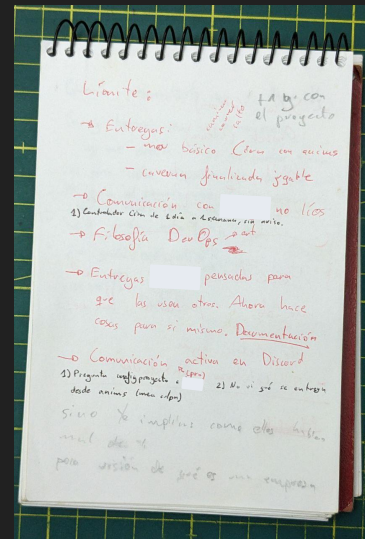 Límite:
+ 1 g. con
el proyecto
→ Entregas:
- mov básico Cam con anims
- enemigo finalizado jugable
→ Comunicación con no líos
1) Controlador Cam de 1 día a 1 semana, sin aviso.
→ Filosofía DevOps → art
→ Entregas pensadas para
que las usen otros. Ahora hace
cosas para sí mismo. Documentación
→ Comunicación activa en Discord
1) Pregunta config proyecto a
2) No sí qué se entrega
desde anims (mea culpa)
sino te implicas como ellos
mal de
pero visión de qué es una empresa